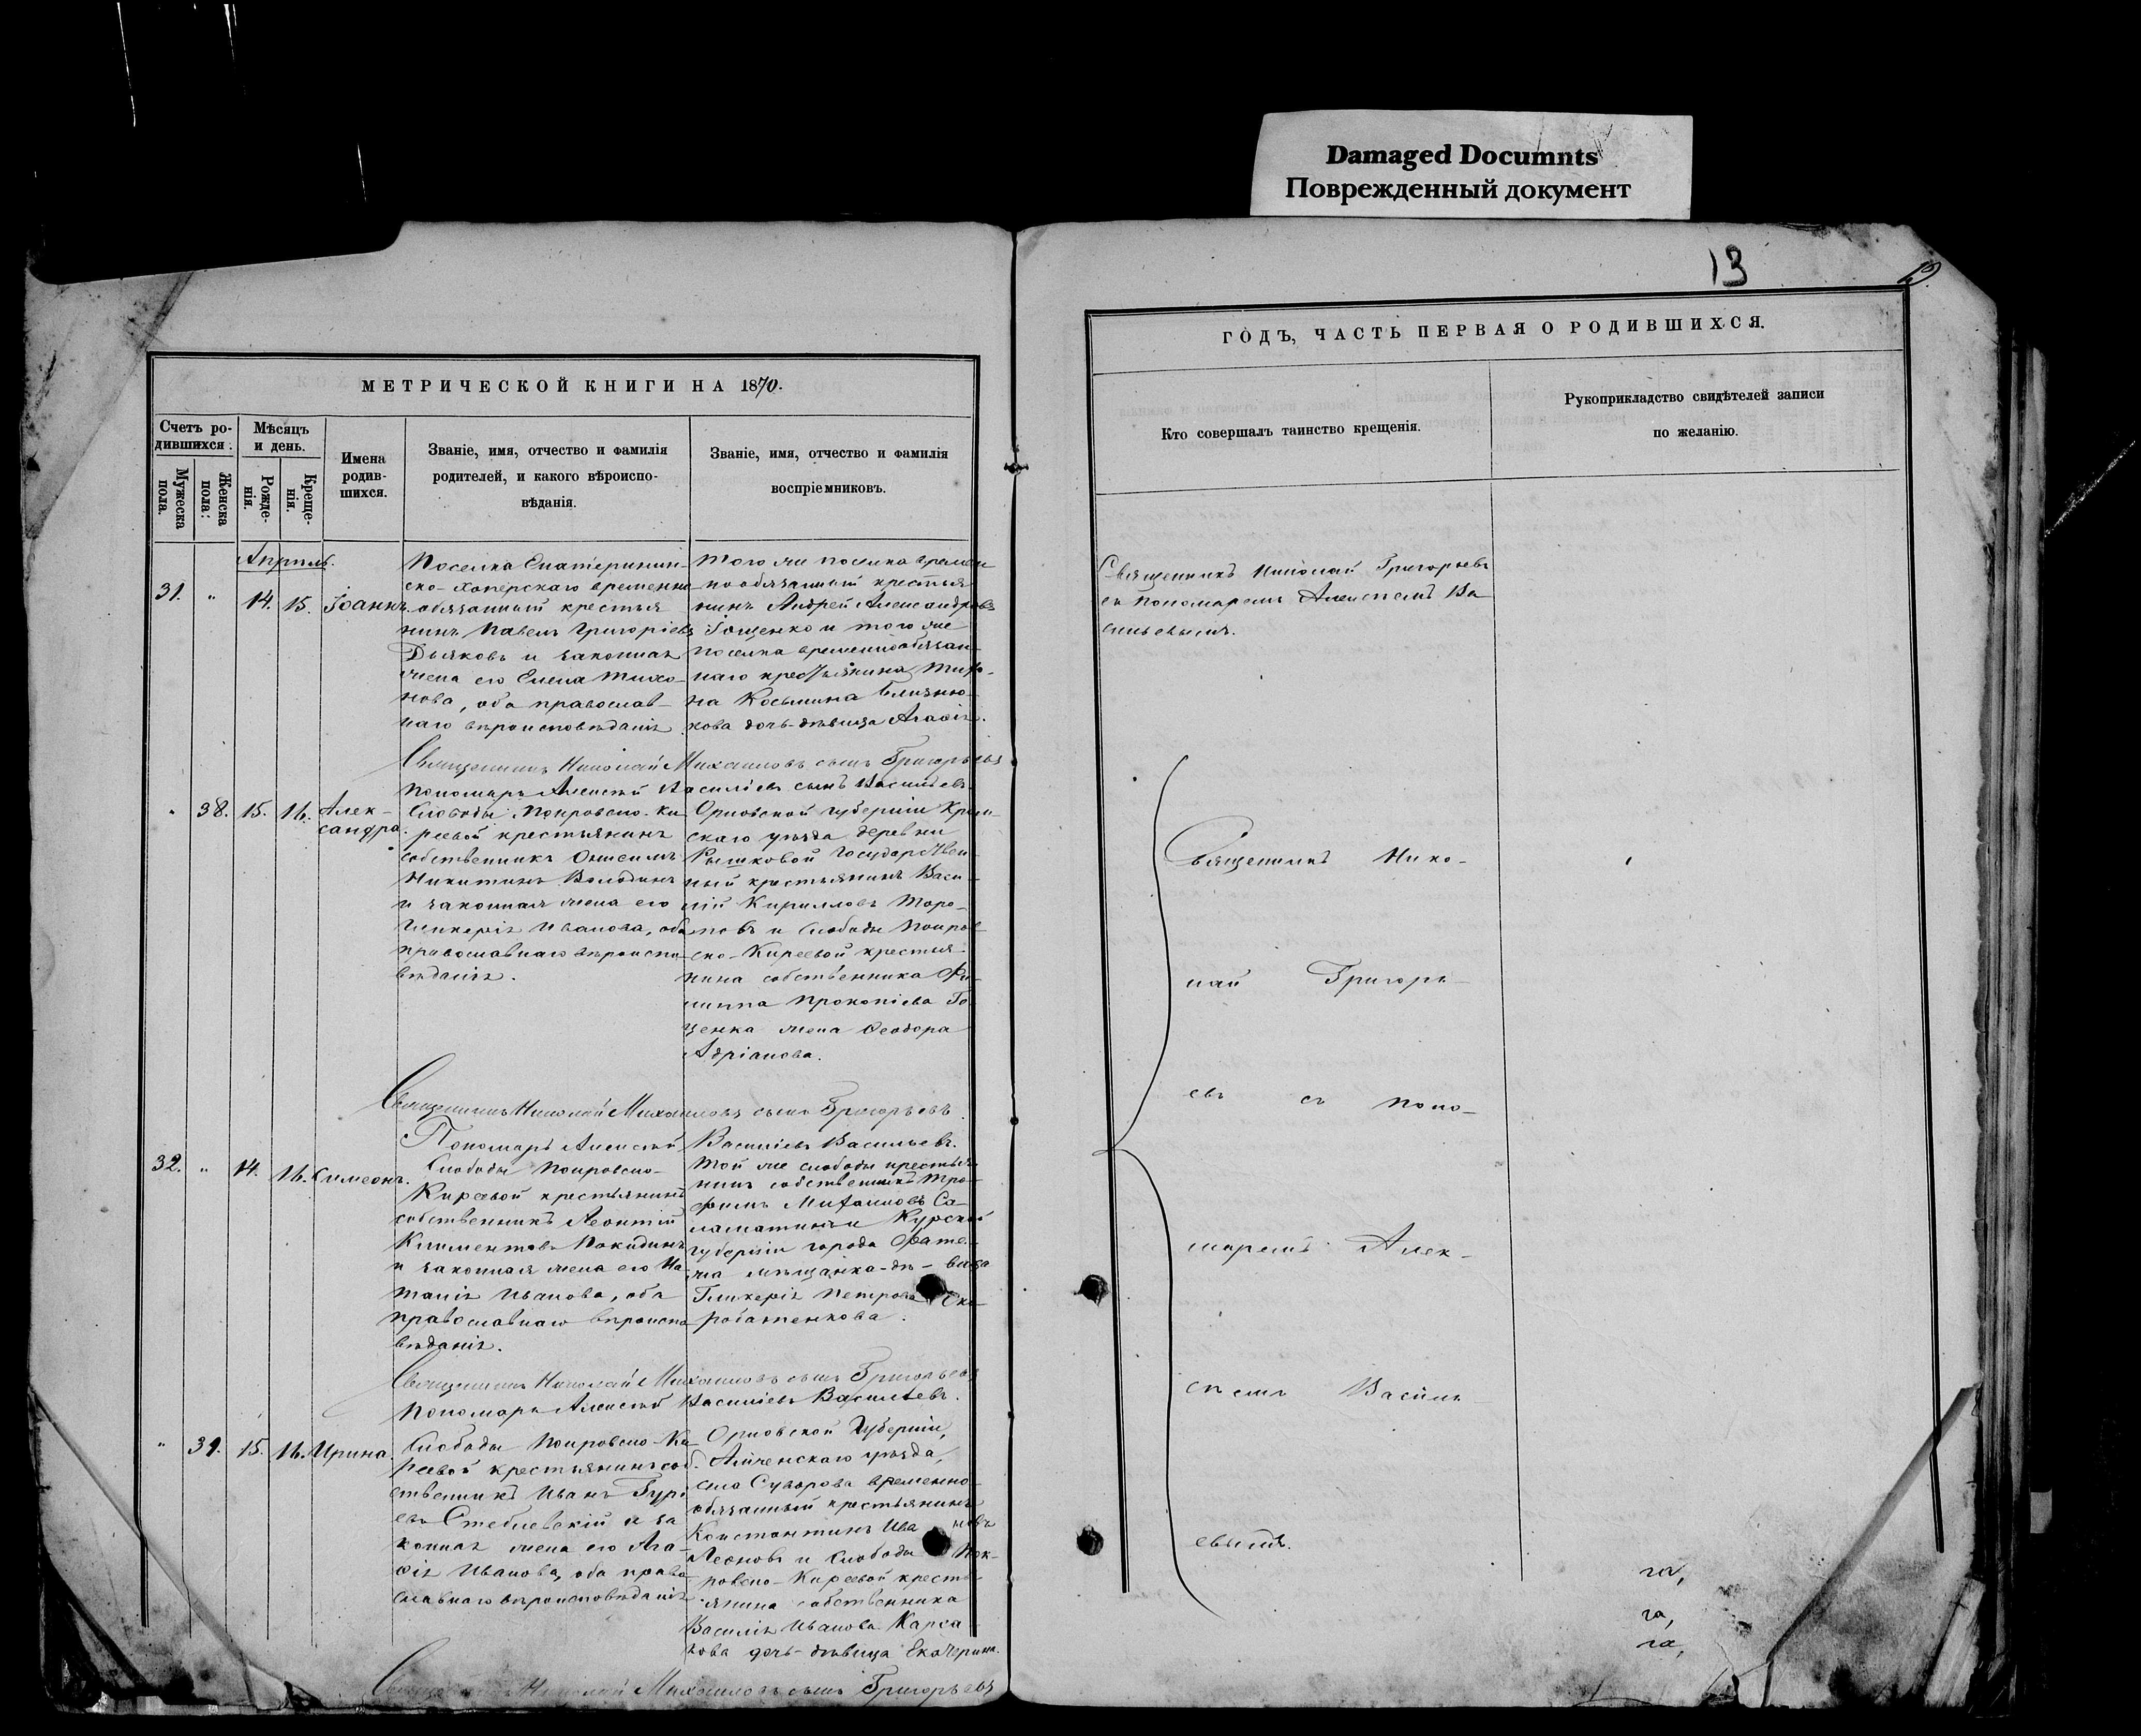 Damaged Documnts
Поврежденный документ
13
МЕТРИЧЕСКОЙ КНИГИ НА 1870.
Счетъ родившихся.
Мужеска пола.
Женска пола:
Мѣсяцъ и день.
Рожденія.
Крещенія.
Имена родившихся.
Званіе, имя, отчество и фамилія
родителей, и какого вѣроиспо-
вѣданія.
Званіе, имя, отчество и фамилія
воспріемниковъ.
Апрѣль.
31. " 14. 15. Іоаннъ.
Поселка Екатеринин-
ско-Хоперскаго временно
обязанный крестья
нинъ Павелъ Григоріевъ
Дьяковъ и законная
жена его Елена Тихо-
нова, оба православ-
наго вѣроисповѣданія
Того же поселка времен
но обязанный крестья
нинъ Андрей Александровъ
Гощенко и того же
поселка временнообязан-
наго крестьянина Тихо-
на Косьмина Близню-
кова дочь-дѣвица Агафія.
Священникъ Николай Михаиловъ сынъ Григорьевъ
Пономарь Алексѣй Василіевъ сынъ Васильевъ
" 38. 15. 16. Алек-
сандра.
Слободы Покровско-Ки
реевой крестьянинъ
собственникъ Онисимъ
Никитинъ Володинъ
и законная жена его
Гликерія Иванова, оба
православнаго вѣроиспо-
вѣданія.
Орловской губерніи Кром-
скаго уѣзда деревни
Рышковой государствен-
ный крестьянинъ Васи-
лій Кирилловъ Торо-
повъ и слободы Покров-
ско-Киреевой крестья-
нина собственника Фи-
липпа Прокопіева Го-
ценка жена Ѳеодора
Адріанова.
Священникъ Николай Михаиловъ сынъ Григорьевъ.
Пономарь Алексѣй Василіевъ Васильевъ.
32. " 14. 16. Симеонъ.
Слободы Покровско-
Киреевой крестьянинъ
собственникъ Леонтій
Климентовъ Покидинъ
и законная жена его На
талія Иванова, оба
православнаго вѣроиспо
вѣданія.
Той же слободы крестья-
нинъ собственникъ Тро-
фимъ Михаиловъ Са-
ламатинъ и Курской
губерніи города Фате-
жа мѣщанка-дѣ-вица
Гликерія Петрова Ско-
робатенкова.
Священникъ Николай Михаиловъ сынъ Григорьевъ
Пономарь Алексѣй Василіевъ Васильевъ.
" 39. 15. 16. Ирина.
Слободы Покровско-Ки
реевой крестьянинъ соб.
ственникъ Иванъ Гурі
евъ Стеблевскій и за
конная жена его Ага-
фія Иванова, оба право-
славнаго вѣроисповѣданія
Орловской Губерніи,
уѣзда,
село Суворова временно-
обязанный крестьянинъ
Константинъ Ива новъ
Леоновъ и слободы Пок-
ровско-Киреевой кресть-
янина собственника
Василія Иванова Карса
кова дочь-дѣвица Екатерина.
Священникъ Николай Михаиловъ сынъ Григорьевъ
ГОДЪ, ЧАСТЬ ПЕРВАЯ О РОДИВШИХСЯ.
Кто совершалъ таинство крещенія.
Рукоприкладство свидѣтелей записи
по желанію.
Священникъ Николай Григорьевъ
съ пономаремъ Алексѣемъ Ва
сильевымъ.
Священникъ Нико-
лай Григорь-
евъ съ поно-
маремъ Алек-
сѣемъ Василь-
евымъ.
га,
га,
га,